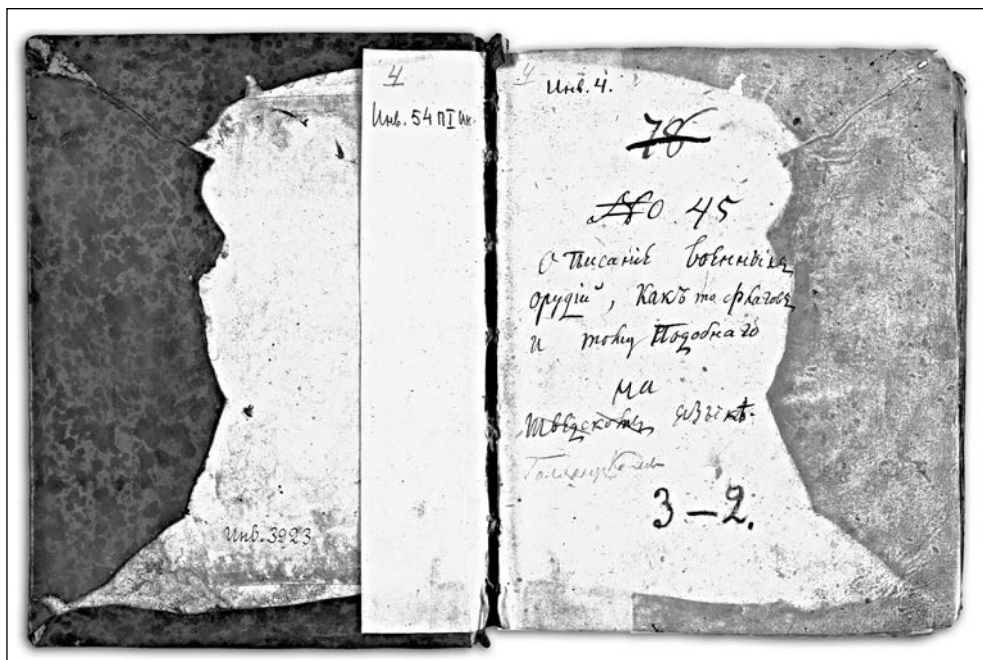 4
Инв. 54 п I ин.
Инв. 3923
4
Инв. 4.
76
№ 45
Описаніе военныхъ
орудій, какъ то флаговъ
и тому Подобнаго
на
Шведскомъ языкѣ.
3–2.